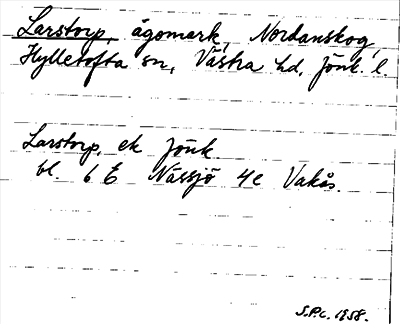 Larstorp, ägomark, Nordanskog,
Hylletofta sn, Västra hd, Jönk. l.
Larstorp, ek Jönk.
bl. 6 E Nässjö 4c Vakås.
S.P.C. 1958.